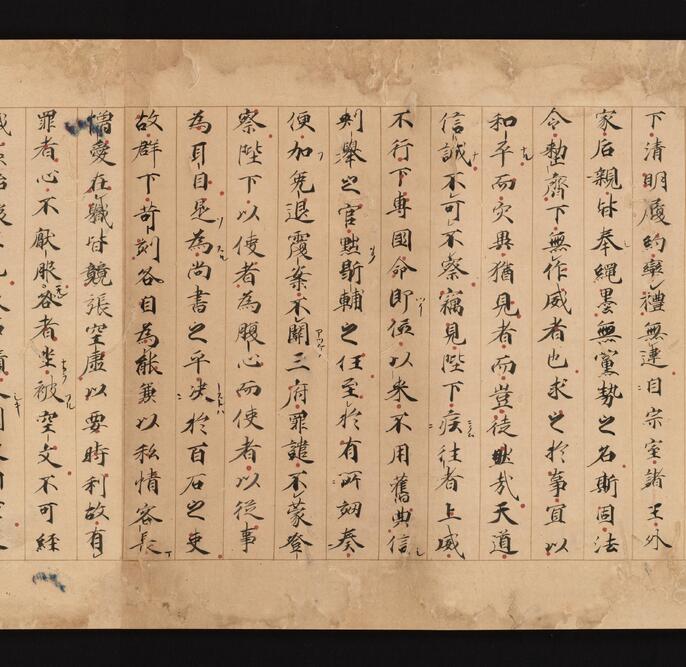 下清明履約率禮無違自宗室諸王外
家后親皆奉繩墨無黨勢之名斯固法
令整齊下無作威者也求之於事宜以
和平而灾異猶見者而豈徒然哉天道
信誠不可不察竊見陛下疾往者上威
不行下專國命即位以来不用舊典信
刾舉之官黜斯輔之任至於有所劾奏
便加免退覆案不關三府罪譴不蒙登
察陛下以使者為腹心而使者以從事
為耳目是為尚書之平决於百石之吏
故群下苛刻各自為能兼以私情容長
憎愛在職皆競張空虛以要時利故有
罪者心不厭服咎者坐被空文不可経